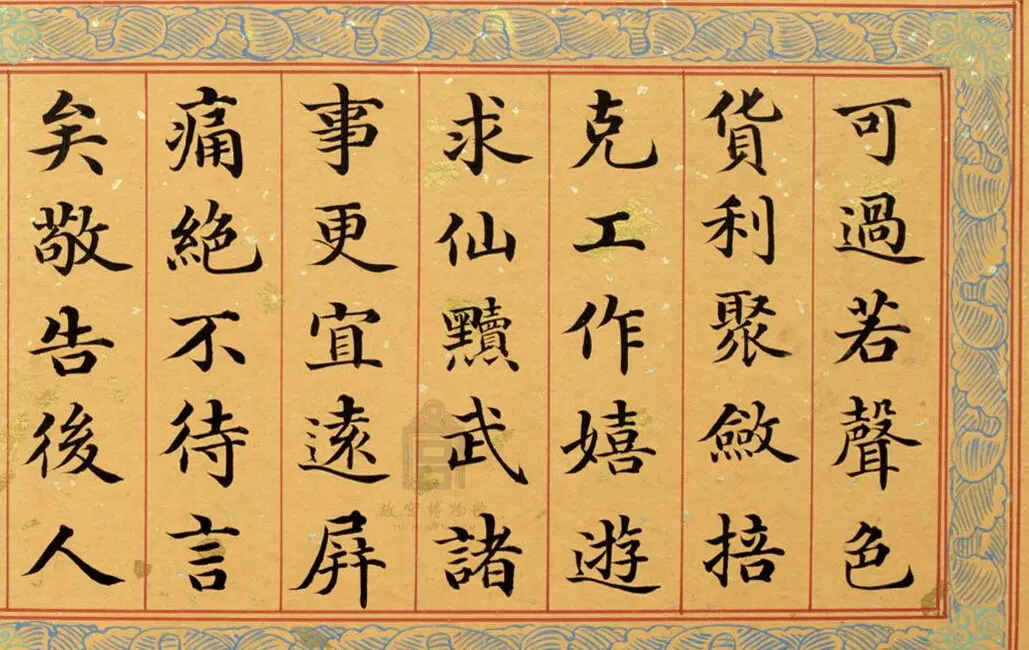 可過若聲色
貨利聚斂掊
克工作嬉遊
求仙黷武諸
事更宜遠屏
痛絕不待言
矣敬告後人
故宫博物院